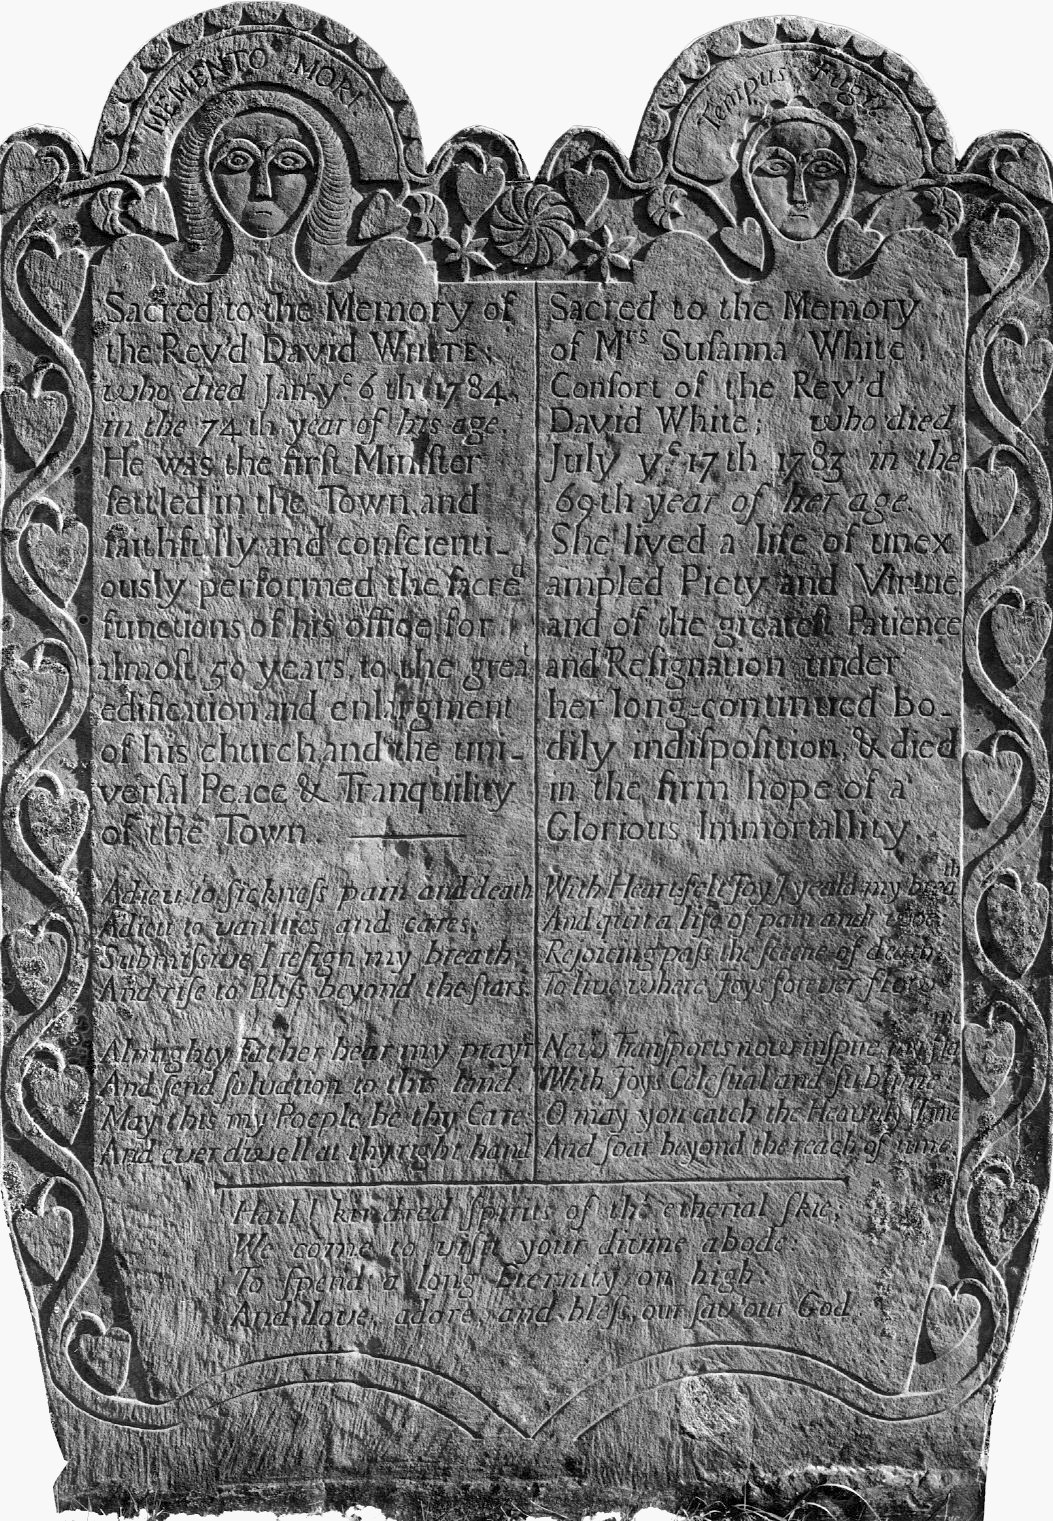 MEMENTO MORI
Sacred to the Memory of
the Rev'd David WHITE;
who died Janʳ yᵉ 6th 1784,
in the 74th year of his age.
He was the firſt Miniſter
ſettled in the Town, and
faithfully and conſcienti-
ously performed the ſacreᵈ
functions of his office for
almoſt 50 years, to the greaᵗ
edification and enlargment
of his church, and the uni-
verſal Peace & Tranquility
of the Town.
Adieu to ſickneſs pain and death
Adieu to vanities and cares,
Submiſsive I reſign my breath,
And riſe to Bliſs beyond the ſtars.
Almighty Father hear my prayr
And ſend ſalvation to this land,
May this my Poeple be thy Care
And ever dwell at thy right hand
Tempus Fugit
Sacred to the Memory
of Mʳˢ Suſanna White;
Conſort of the Rev'd
David White; who died
July yᵉ 17th 1783 in the
69th year of her age
She lived a life of unex
ampled Piety and Virtue
and of the greateſt Patience
and Reſignation under
her long-continued bo-
dily indiſpoſition, & died
in the firm hope of a
Glorious Immortallity
With Heart-felt Joy I yeald my breaᵗʰ
And quit a life of pain and woe
Rejoicing paſs the ſceene of death,
To live where Joys forever flow
New Tranſports now inſpire my ſtraᵐ
With Joys Celeſtial and ſublime;
O may you catch the Heavenly flame
And ſoar beyond the reach of time.
Hail! kindred ſpirits of the etherial ſkie;
We come to viſit your divine abode:
To ſpend a long Eternity on high:
And love, adore, and bleſs, our ſav'our God